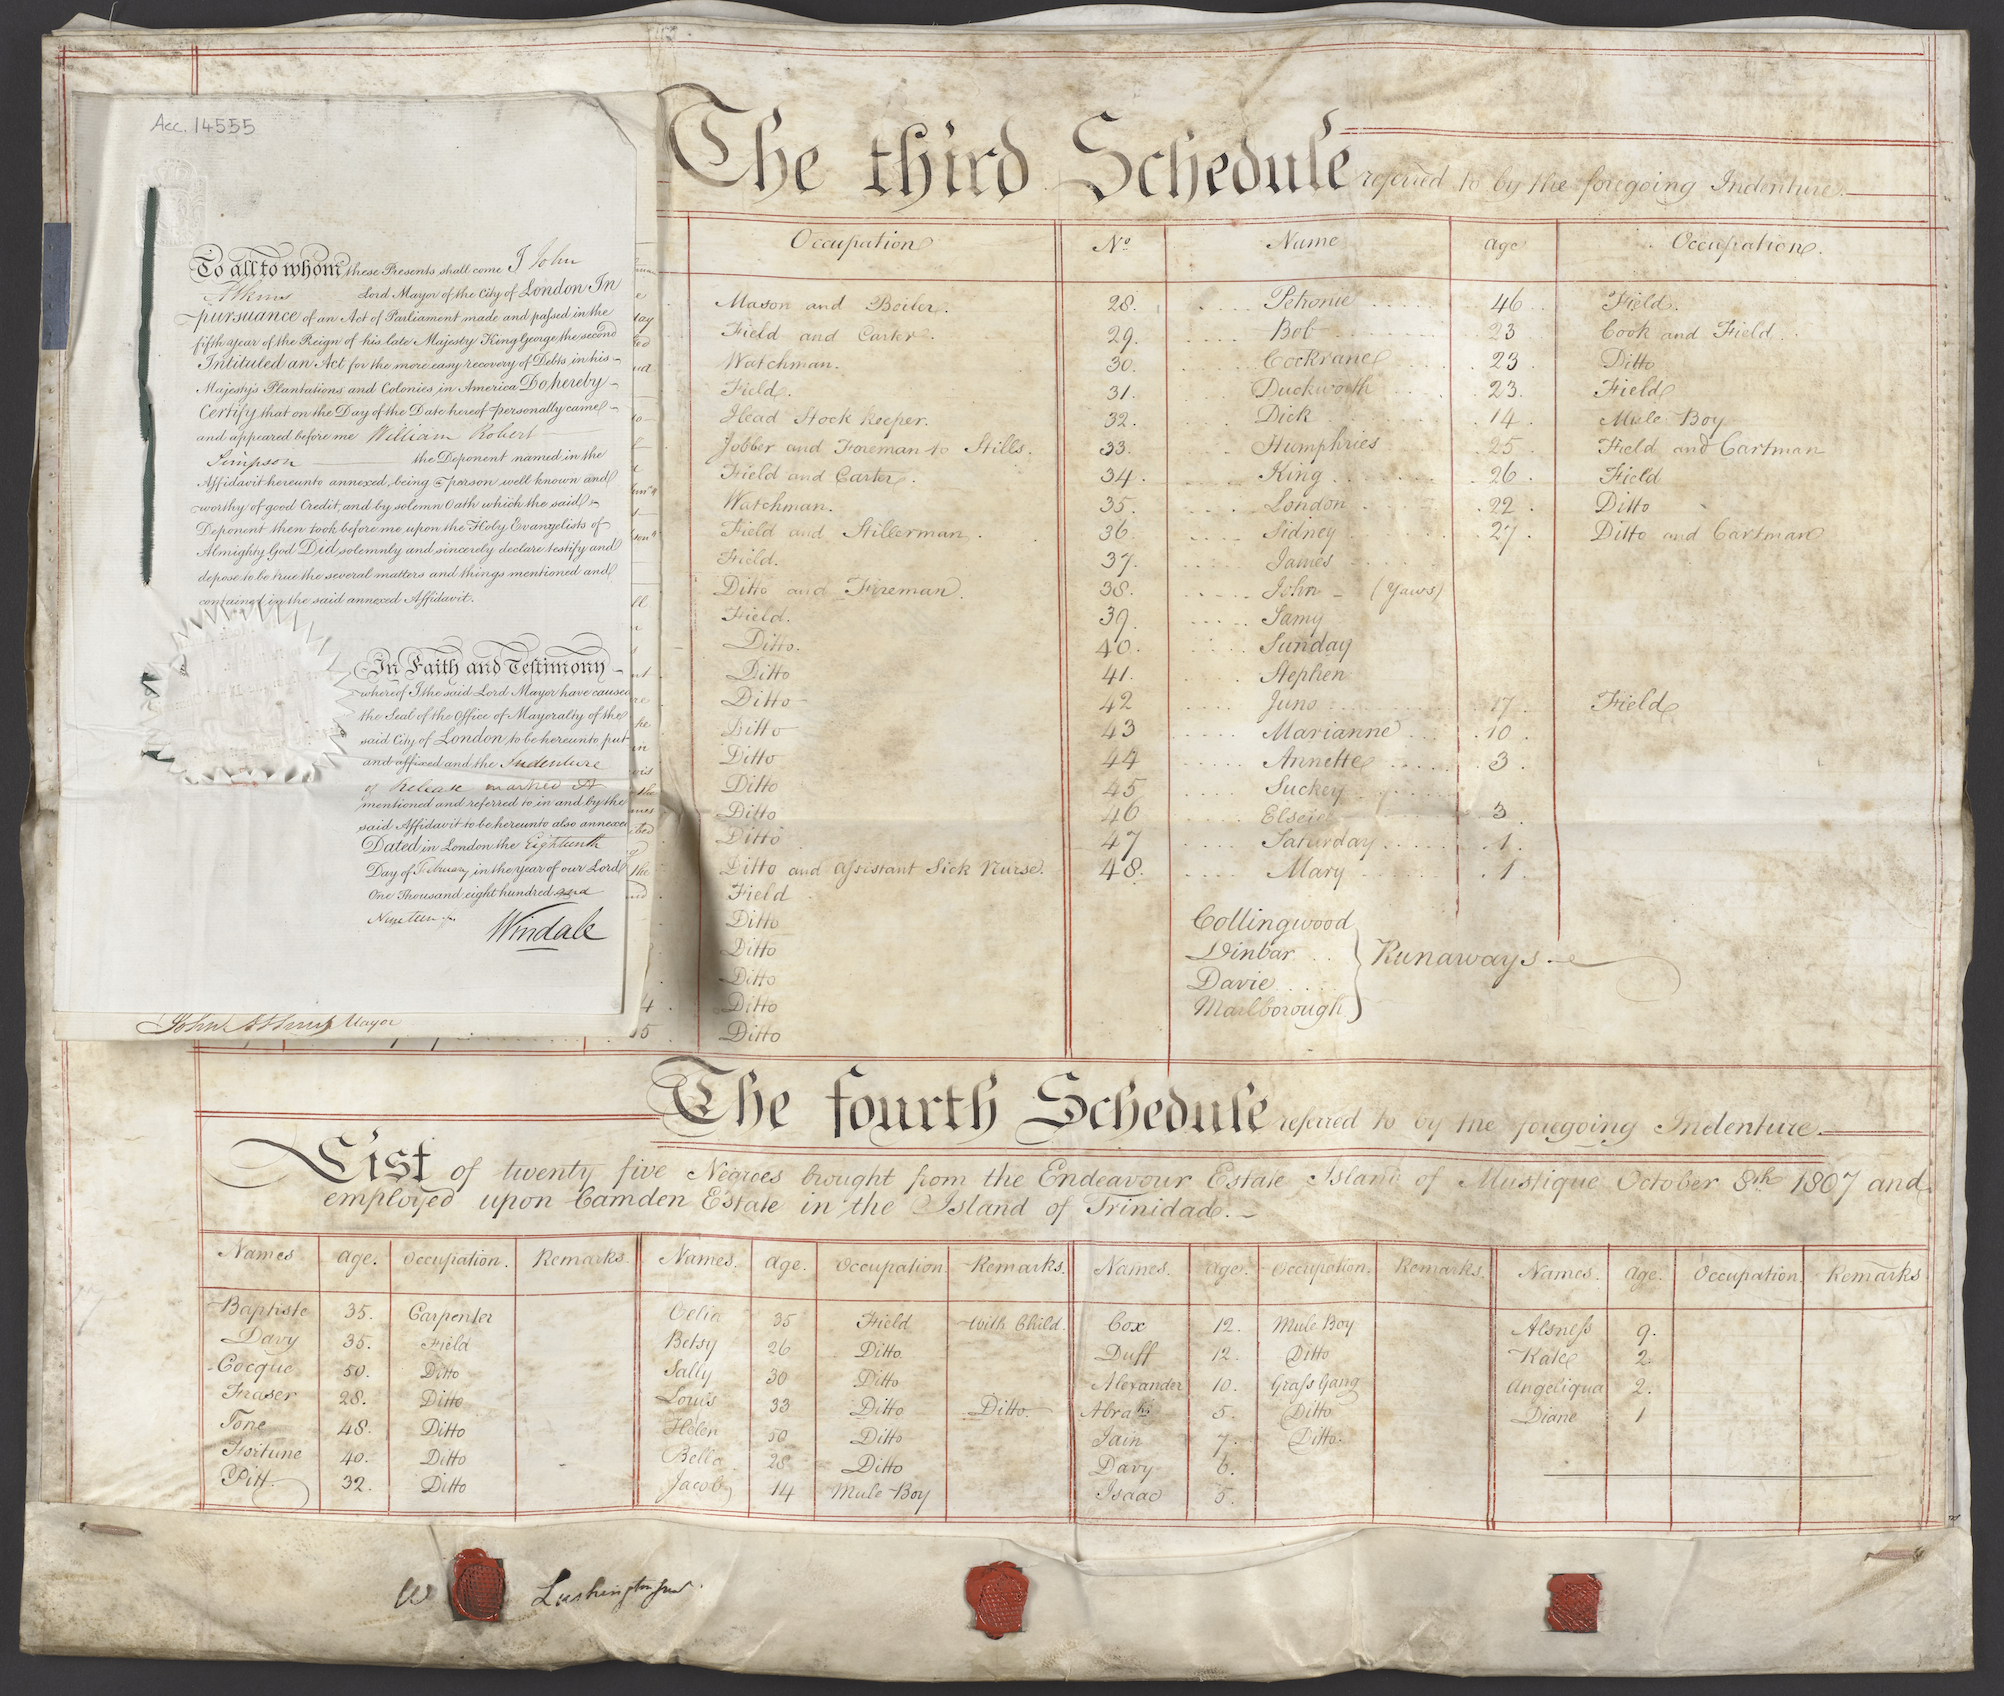 Acc. 14555
To all to whom these Presents shall come I John
Atkins Lord Mayor of the City of London In
pursuance of an Act of Parliament made and passed in the
fifth year of the Reign of his late Majesty King George the second
Intituled an Act for the more easy recovery of Debts in his
Majesty's Plantations and Colonies in America Do hereby
Certify that on the Day of the Date hereof personally came
and appeared before me William Robert
Simpson the Deponent named in the
Affidavit hereunto annexed, being a person well known and
worthy of good Credit, and by solemn Oath which the said
Deponent then took before me upon the Holy Evangelists of
Almighty God Did solemnly and sincerely declare testify and
depose to be true the several matters and things mentioned and
contained in the said annexed Affidavit.
In Faith and Testimony
whereof I the said Lord Mayor have caused
the Seal of the Office of Mayoralty of the
said City of London to be hereunto put
and affixed and the Indenture
of Release marked A
mentioned and referred to in and by the
said Affidavit to be hereunto also annexed
Dated in London the Eighteenth
Day of February in the year of our Lord
One Thousand eight hundred and
Nineteen
Windale
John Atkins Mayor
The third Schedule referred to by the foregoing Indenture.
Occupation No. Name Age Occupation.
Mason and Boiler. 28. Petronie 46 Field.
Field and Carter. 29. Bob 23 Cook and Field.
Watchman. 30. Cockrane 23 Ditto
Field. 31. Duckworth 23. Field
Head Stock keeper. 32. Dick 14. Mule Boy
Jobber and Foreman to Stills. 33. Humphries 25 Field and Cartman
Field and Carter. 34. King 26. Field
Watchman. 35. London 22. Ditto
Field and Stillerman. 36. Sidney 27. Ditto and Cartman
Field. 37. James
Ditto and Fireman. 38. John (Yaws)
Field. 39. Samy
Ditto. 40. Sunday
Ditto 41. Stephen
Ditto 42 Juno 17. Field
Ditto 43 Marianne 10.
Ditto 44 Annette 3.
Ditto 45 Suckey
Ditto 46 Elseie 3.
Ditto 47 Saturday 1.
Ditto and Assistant Sick Nurse. 48. Mary 1.
Field
Ditto Collingwood
Ditto Dinbar Runaways
Ditto Davie
4 Ditto Marlborough
5 Ditto
The fourth Schedule referred to by the foregoing Indenture.
List of twenty five Negroes bought from the Endeavour Estate Island of Mustique October 8th 1807 and
employed upon Camden Estate in the Island of Trinidade.
Names Age. Occupation. Remarks. Names. Age. Occupation Remarks. Names. Age. Occupation. Remarks. Names. Age. Occupation. Remarks
Baptiste 35. Carpenter Celia 35 Field with Child. Cox 12. Mule Boy Alsness 9.
Davy 35. Field Betsy 26 Ditto. Duff 12. Ditto Kate 2.
Cocque 50. Ditto Sally 30 Ditto Alexander 10. Grass Gang Angeliqua 2.
Fraser 28. Ditto Louis 33 Ditto Ditto. Abram 5. Ditto Diane 1
Tone 48. Ditto Helen 50 Ditto Jain 7. Ditto.
Fortune 40. Ditto Bella 28 Ditto Davy 6.
Pitt 32. Ditto Jacob 14 Mule Boy Isaac 5.
W Lushington Junr.